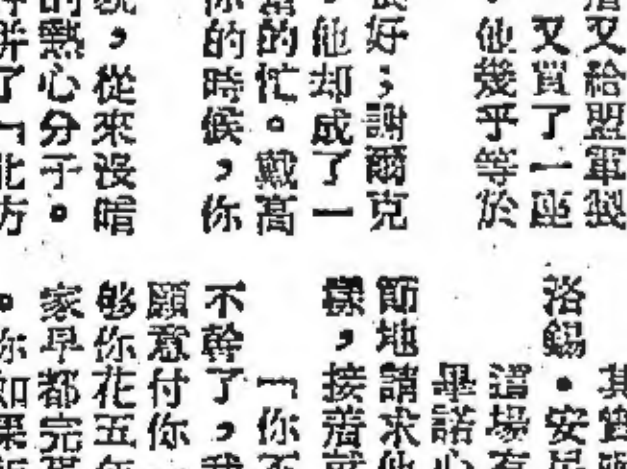 又給盟軍製
又買了一座
他幾乎等於
好；謝爾克
他却成了一
的忙。戴高
的時候，你
，從來沒暗
熱心分子。
了「北方
洛錫·安
這場
畢諾心
節地請求他
樣，接着就
「你不
不幹了，我
願意付你
够你花五年
家早都完
。你如果